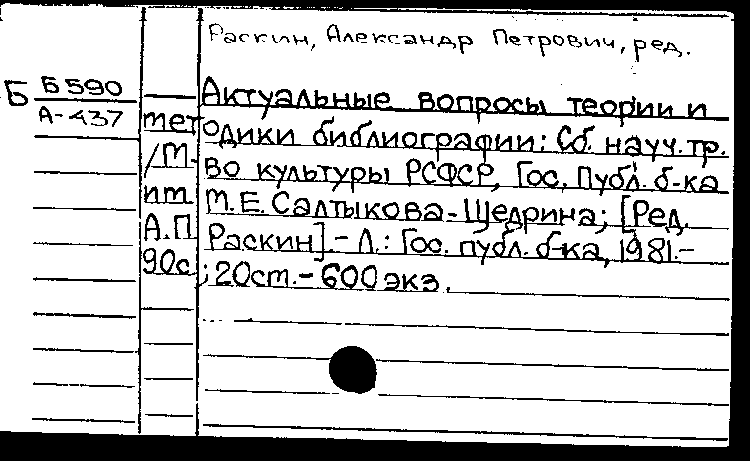 Раскин, Александр Петрович, ред.
Б Б590
А-437
Актуальные вопросы теории и
методики библиографии: Сб. науч. тр.
/М-во культуры РСФСР, Гос. Публ. б-ка
им. М.Е. Салтыкова-Щедрина; [Ред.
А.П. Раскин]. - Л.: Гос. публ. б-ка, 1981.-
90с.; 20ст. - 600 экз.